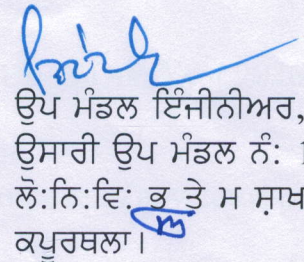 ਉਪ ਮੰਡਲ ਇੰਜੀਨੀਅਰ,
ਉਸਾਰੀ ਉਪ ਮੰਡਲ ਨੰ:
ਲੋ:ਨਿ:ਵਿ: ਭ ਤੇ ਮ ਸ਼ਾਖ
ਕਪੂਰਥਲਾ।